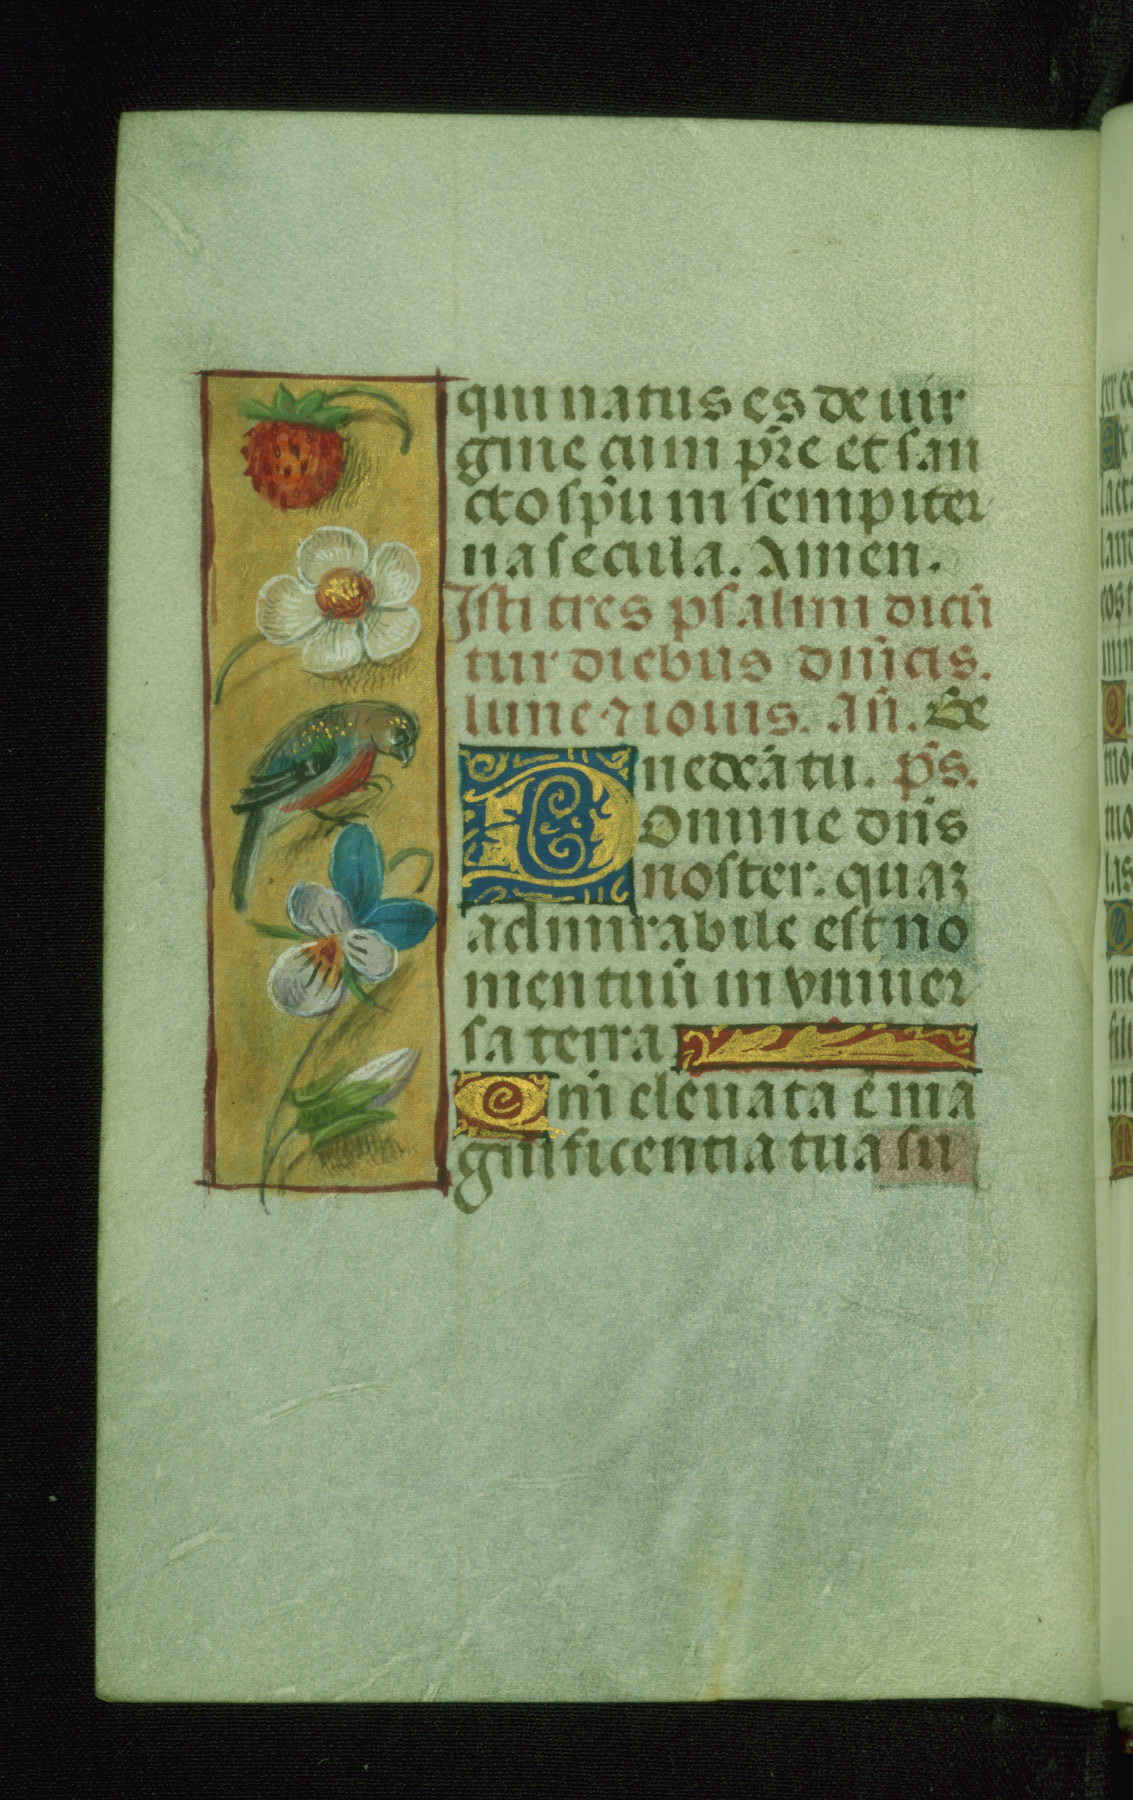 qui natus es de uir
gine cum pr̄e et san
cto sp̄u in sempiter
na secula. Amen.
Isti tres psalmi dicū
tur diebus dn̄icis.
lune ⁊ iouis. An̄. Be
nedc̄a tu. ps̄.
Domine dn̄s
noster. quaꝫ
admirabile est no
men tuū in vniuer
sa terra
Qm̄ eleuata ē ma
gnificentia tua su